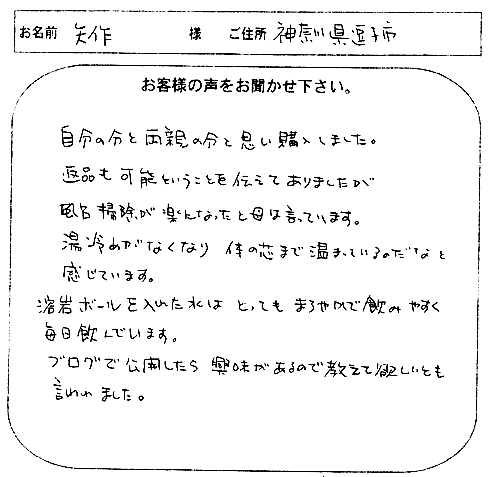 お名前 矢作 様 ご住所 神奈川県逗子市
お客様の声をお聞かせ下さい。
自分の分と両親の分と思い購入しました。
返品も可能ということを伝えてありましたが
風呂掃除が楽になったと母は言っています。
湯冷めがなくなり 体の芯まで温まっているのだなと
感じています。
溶岩ボールを入れた水は とってもまろやかで飲みやすく
毎日飲んでいます。
ブログで公開したら 興味があるので教えて欲しいとも
言われました。